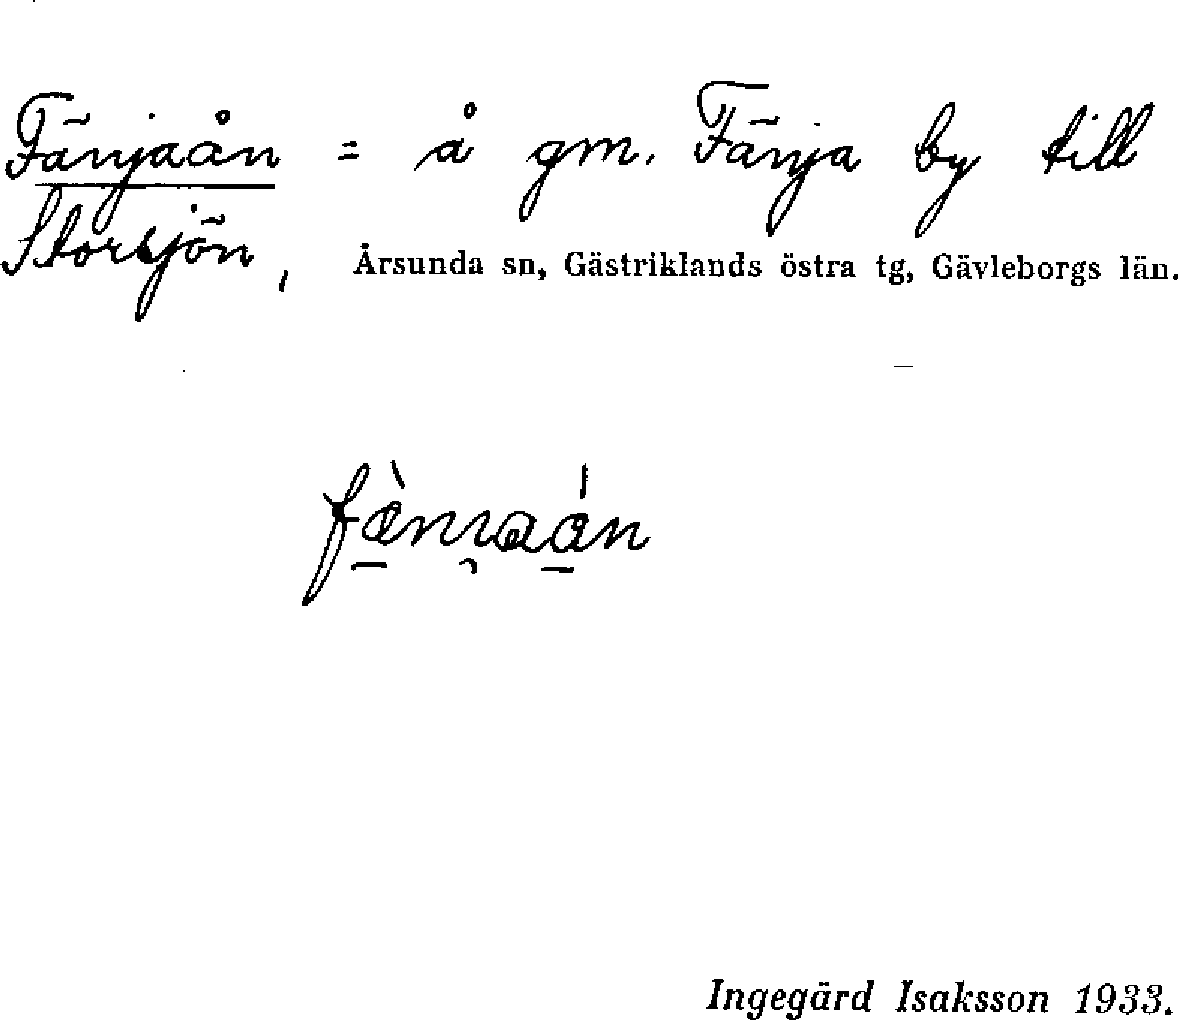 Fänjaån = å gm. Fänja by till
Storsjön, Årsunda sn, Gästriklands östra tg, Gävleborgs län.
Ingegärd Isaksson 1933.